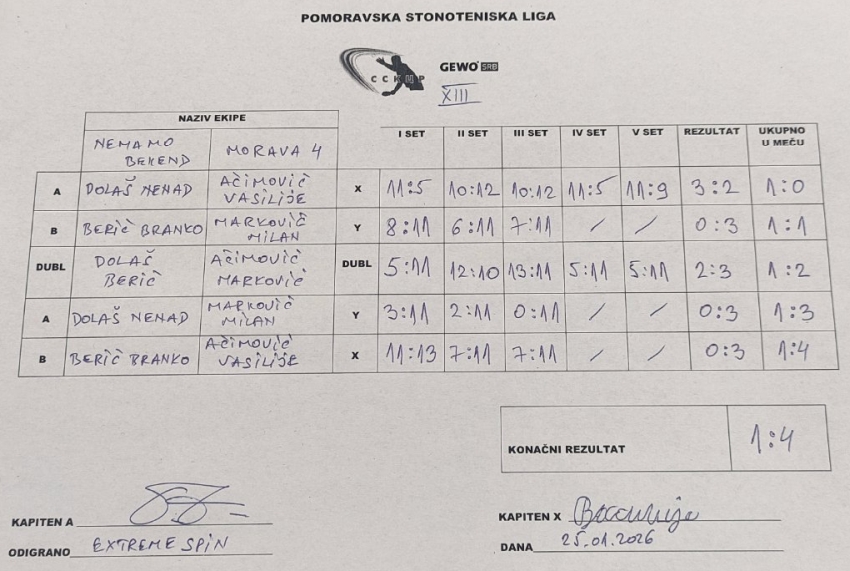 POMORAVSKA STONOTENISKA LIGA
CCKUP GEWO SRB
XIII
NAZIV EKIPE I SET II SET III SET IV SET V SET REZULTAT UKUPNO U MEČU
NEMAMO BEKEND MORAVA 4
A DOLAŠ NENAD AĆIMOVIĆ VASILIJE X 11:5 10:12 10:12 11:5 11:9 3:2 1:0
B BERIĆ BRANKO MARKOVIĆ MILAN Y 8:11 6:11 7:11 / / 0:3 1:1
DUBL DOLAŠ BERIĆ AĆIMOVIĆ MARKOVIĆ DUBL 5:11 12:10 13:11 5:11 5:11 2:3 1:2
A DOLAŠ NENAD MARKOVIĆ MILAN Y 3:11 2:11 0:11 / / 0:3 1:3
B BERIĆ BRANKO AĆIMOVIĆ VASILIJE X 11:13 7:11 7:11 / / 0:3 1:4
KONAČNI REZULTAT 1:4
KAPITEN A
KAPITEN X
ODIGRANO EXTREME SPIN
DANA 25.01.2026